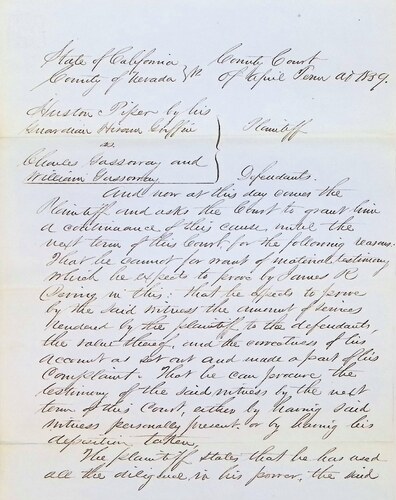 State of California } County Court
County of Nevada } ss of April Term AD 1859.
Huston Piper by his
Guardian Hiram
vs } Plaintiff
Charles Gassoway and
William Gassoway Defendants.
And now at this day comes the
Plaintiff and asks the Court to grant him
a continuance of this cause until the
next term of this Court, for the following reasons.
That he cannot for want of material testimony
which he expects to prove by James K
in this: that he expects to prove
by the said witness the amount of services
rendered by the plaintiff to the defendants,
the value thereof, and the correctness of his
account as set out and made a part of his
Complaint. That he can procure the
testimony of the said witness by the next
term of this Court, either by having said
witness personally present. or by having his
deposition taken,
The plaintiff states that he has used
all the diligence in his power, the said